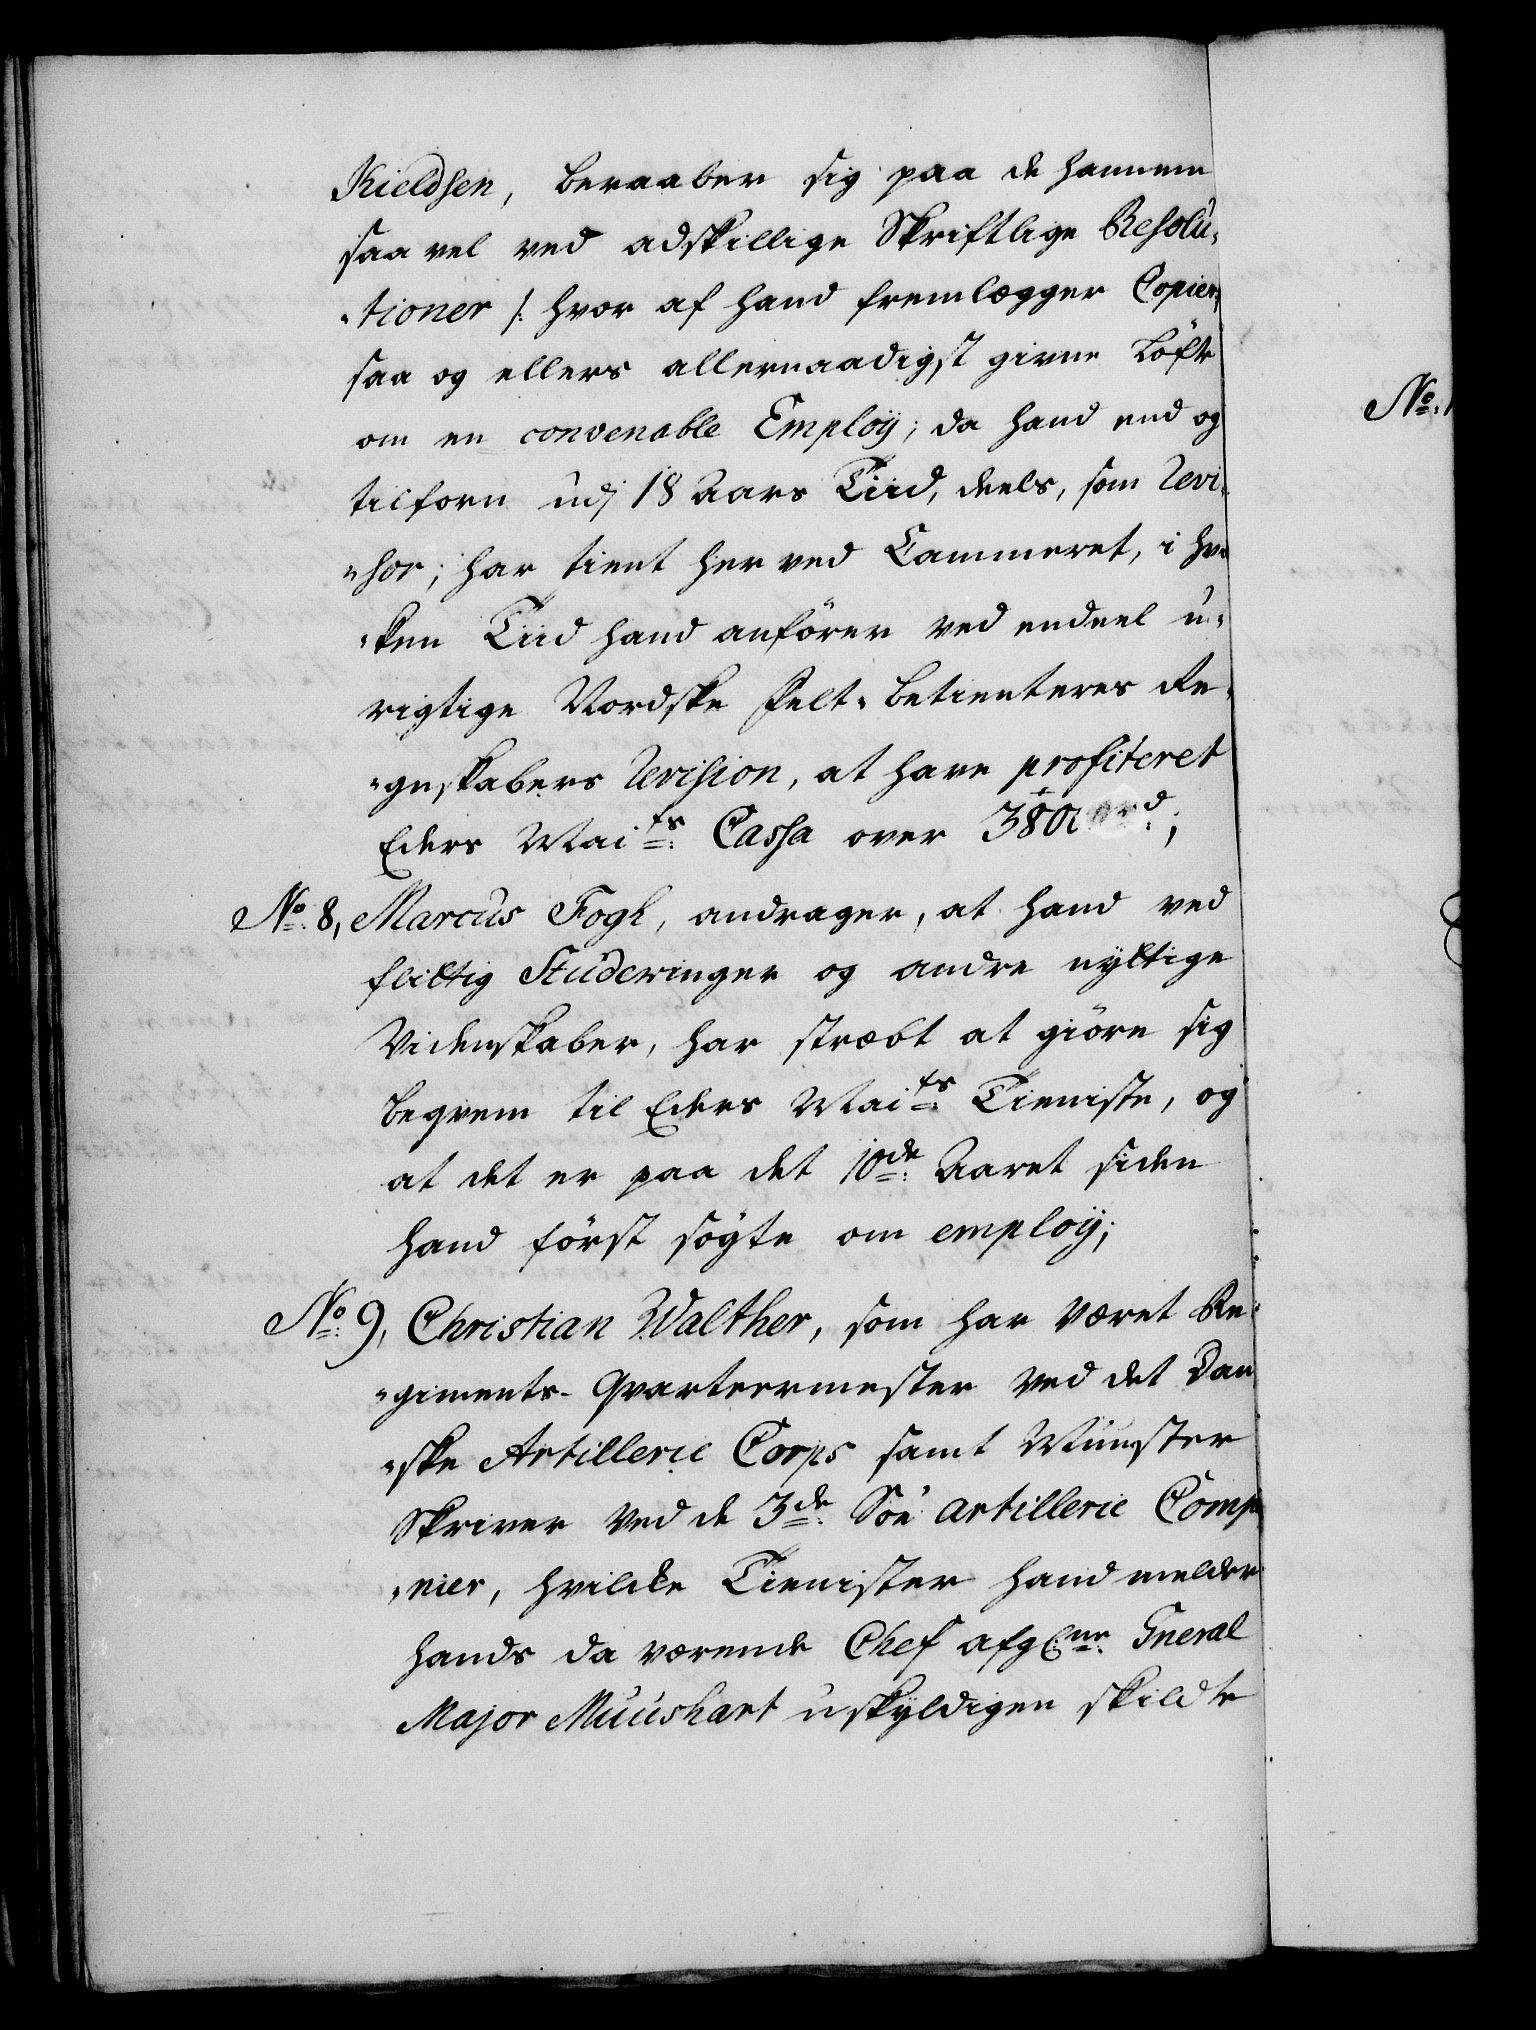 Kieldsen, beraaber sig paa de hannem
saa vel ved adskillige Skriftlige Resolu-
-tioner /: hvor af hand fremlægger Copier,
saa og ellers allernaadigst givne Löfte
om en convenable Employ; da hand end og
tilforn udj 18 Aars Tiid, deels, som Revi-
-sor; har tient her ved Cammeret, i hvil
-ken Tiid hand anförer ved endeel u-
rigtige Nordske Felt-betienteres Re-
-gnskabers Revision, at have profiteret
Eders Maits Cassa over 380 rd;
No. 8, Marcus Fogh, andrager, at hand ved
flittig Studeringer og andre nyttige
Videnskaber, har stræbt at giöre sig
beqvem til Eders Maits Tieniste, og
at det er paa det 10de Aaret siden
hand först sögte om employ;
No. 9, Christian Walther, som har været Re-
-giments-Qvarteermester ved det Dan
-ske Artillerie Corps samt Münster
Skriver ved de 3de Söe Artillerie Compa
-nier, hvilcke Tienister hand melder
hands da værende Chef afgne Gneral
Major Muushart uskyldigen skildte
No. 1